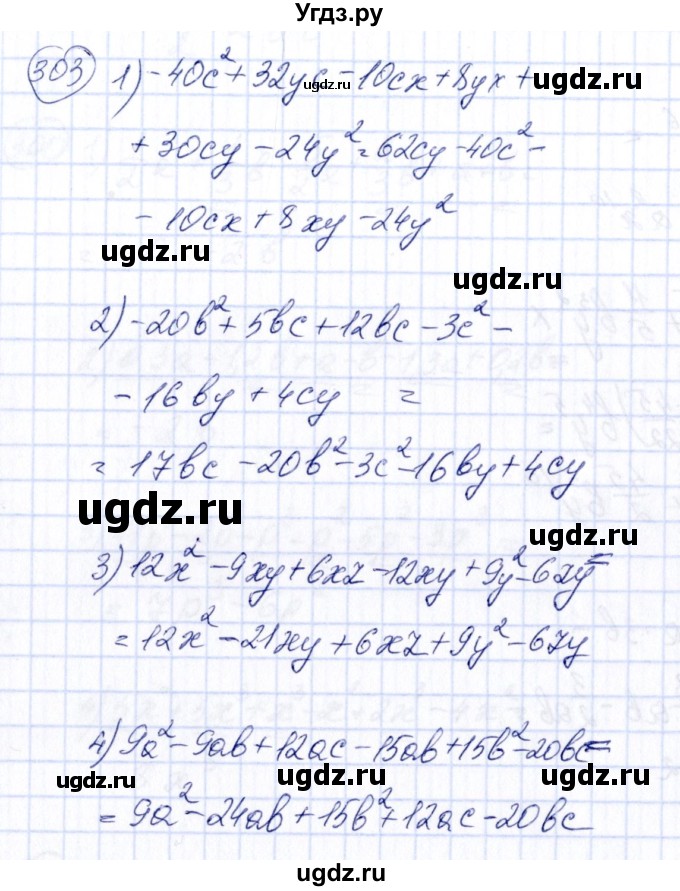 Угдз.ру
303 1) -40c² + 32yc - 10cx + 8yx +
ugdz.ru
+ 30cy - 24y² = 62cy - 40c² -
- 10cx + 8xy - 24y²
ugdz.ru ugdz.ru
2) -20b² + 5bc + 12bc - 3c² -
- 16by + 4cy =
= 17bc - 20b² - 3c² - 16by + 4cy
ugdz.ru ugdz.ru
3) 12x² - 9xy + 6xz - 12xy + 9y² - 6zy =
= 12x² - 21xy + 6xz + 9y² - 6zy
ugdz.ru
4) 9a² - 9ab + 12ac - 15ab + 15b² - 20bc =
ugdz.ru
= 9a² - 24ab + 15b² + 12ac - 20bc
Угдз.ру